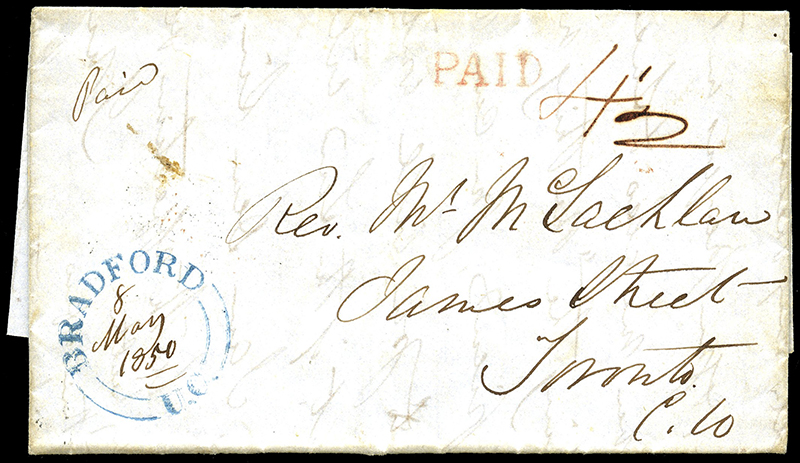 Paid
PAID
4½
Rev. Mr. McLachlan
James Street
Toronto.
C. W
BRADFORD
8
May
1850
U.C.